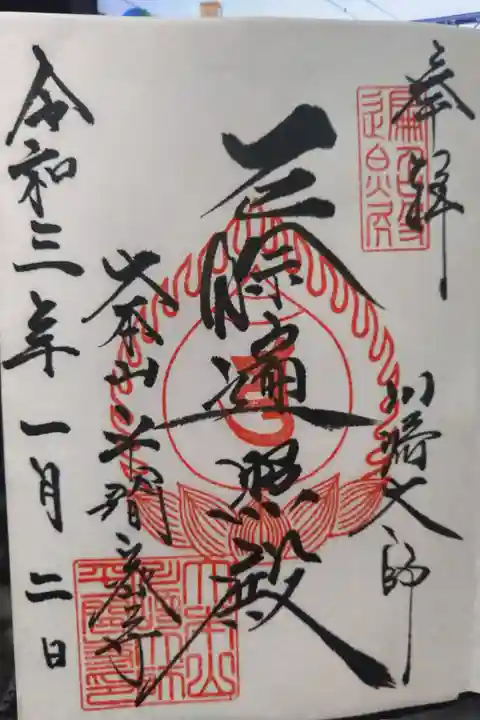 奉拝
川崎大師
厄除遍照殿
大本山平間寺
令和三年一月二日